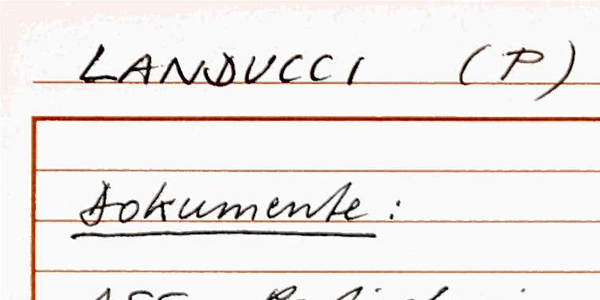 LANDUCCI (P)
Dokumente: